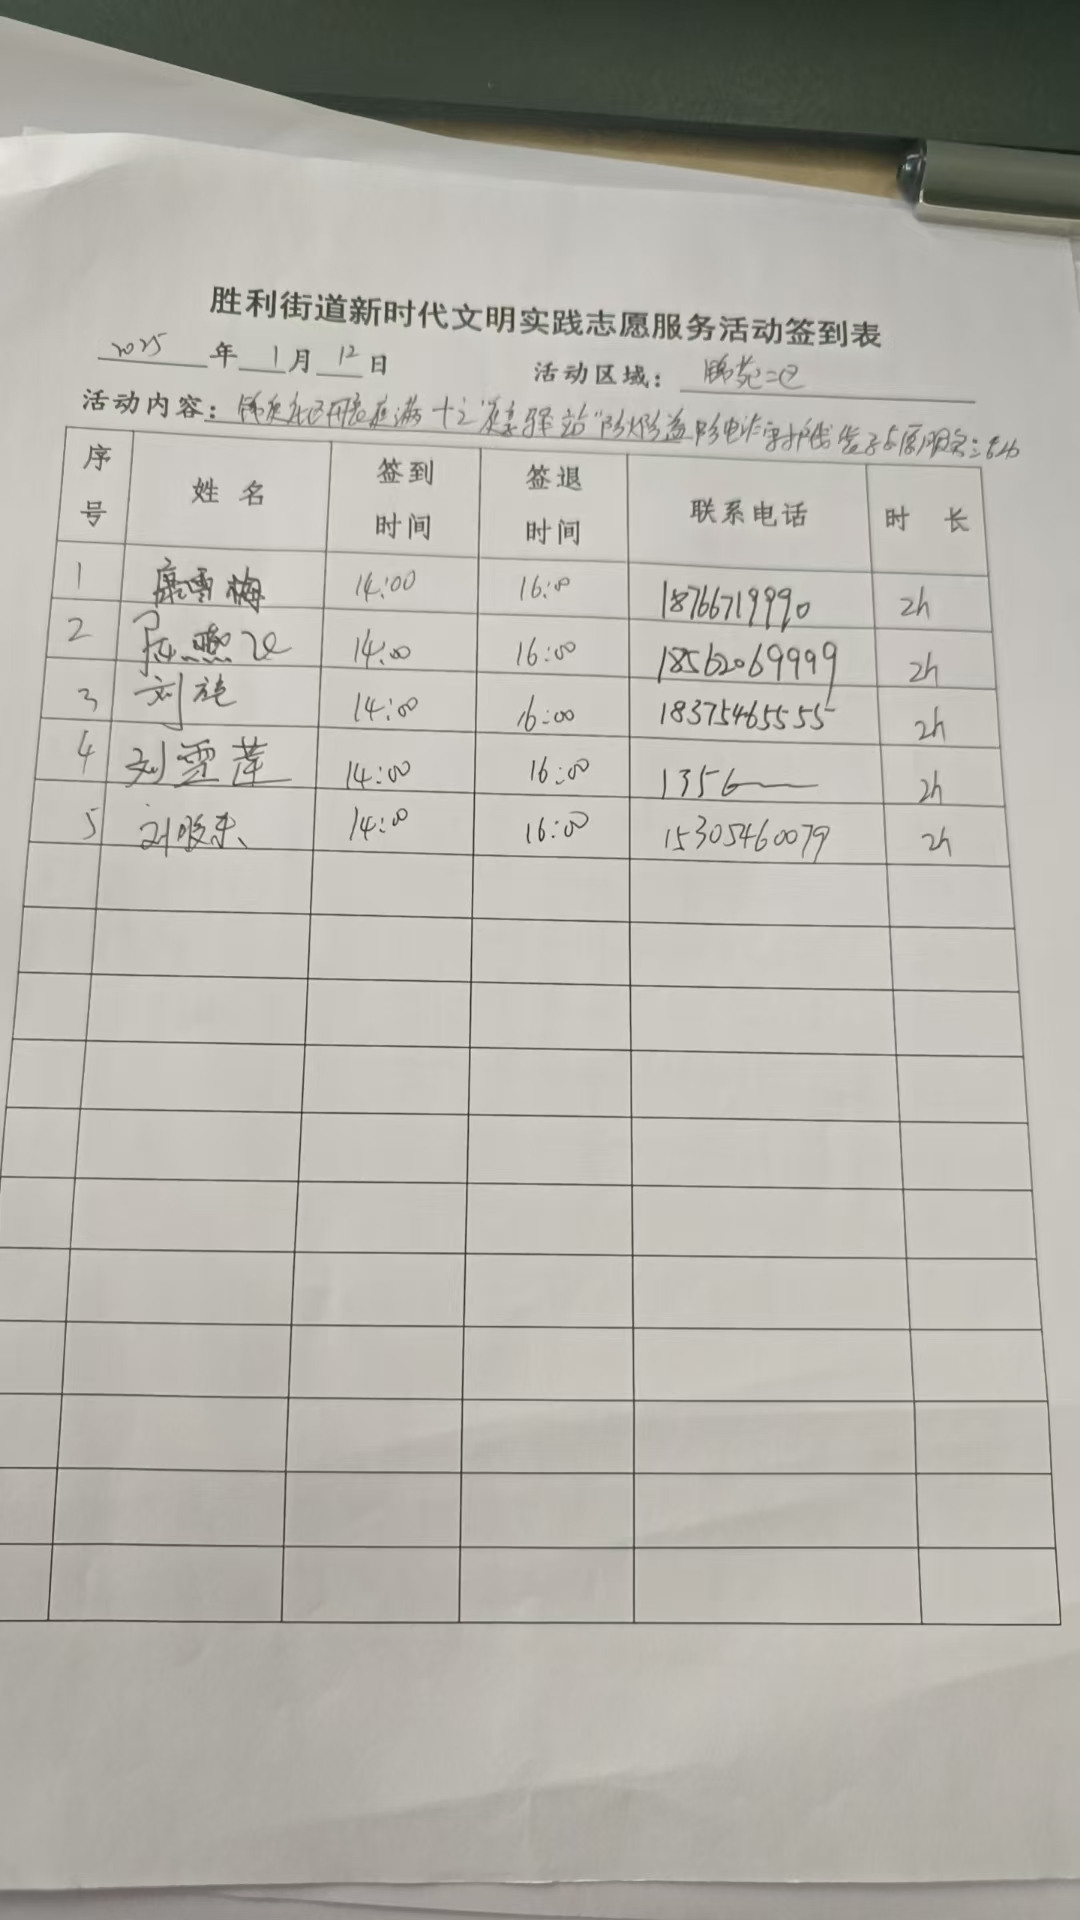 胜利街道新时代文明实践志愿服务活动签到表
2025年1月12日 活动区域：锦苑二区
活动内容：锦苑社区开展 十之 驿站"防火防盗防电诈 志愿服务
序号 姓名 签到时间 签退时间 联系电话 时长
1 雪梅 14:00 16:00 18766719990 2h
2 14:00 16:00 18562069999 2h
3 刘 14:00 16:00 18375465555 2h
4 刘雪莲 14:00 16:00 1356 2h
5 刘 14:00 16:00 15305460079 2h